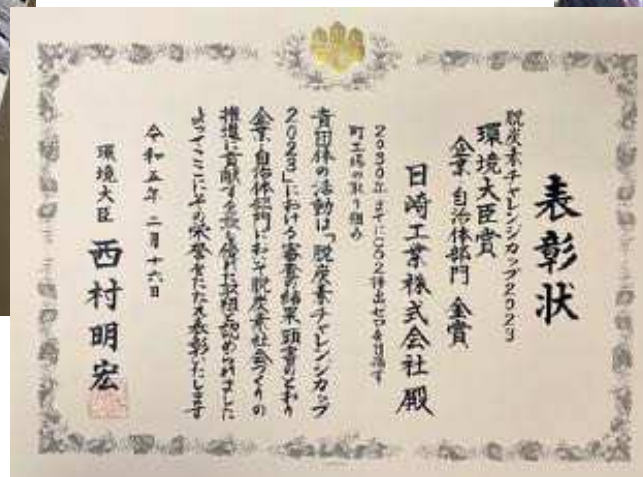 表彰状
脱炭素チャレンジカップ2023
環境大臣賞
企業・自治体部門 金賞
日崎工業株式会社 殿
2030年までにCO2排出ゼロを目指す
町工場の取り組み
貴団体の活動は「脱炭素チャレンジカップ
2023」における審査の結果頭書のとおり
企業・自治体部門において脱炭素社会づくりの
推進に貢献する最も優れた取組と認められました
よってここにその栄誉をたたえ表彰いたします
令和五年二月十六日
環境大臣 西村明宏